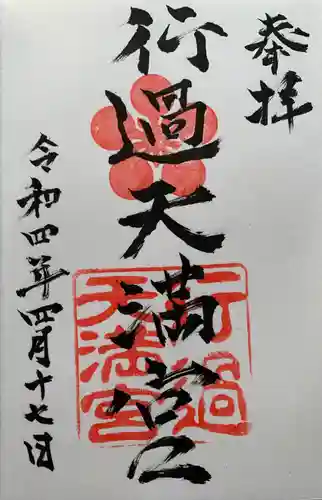 奉拝
行過天満宮
行過
天満宮
令和四年四月十七日